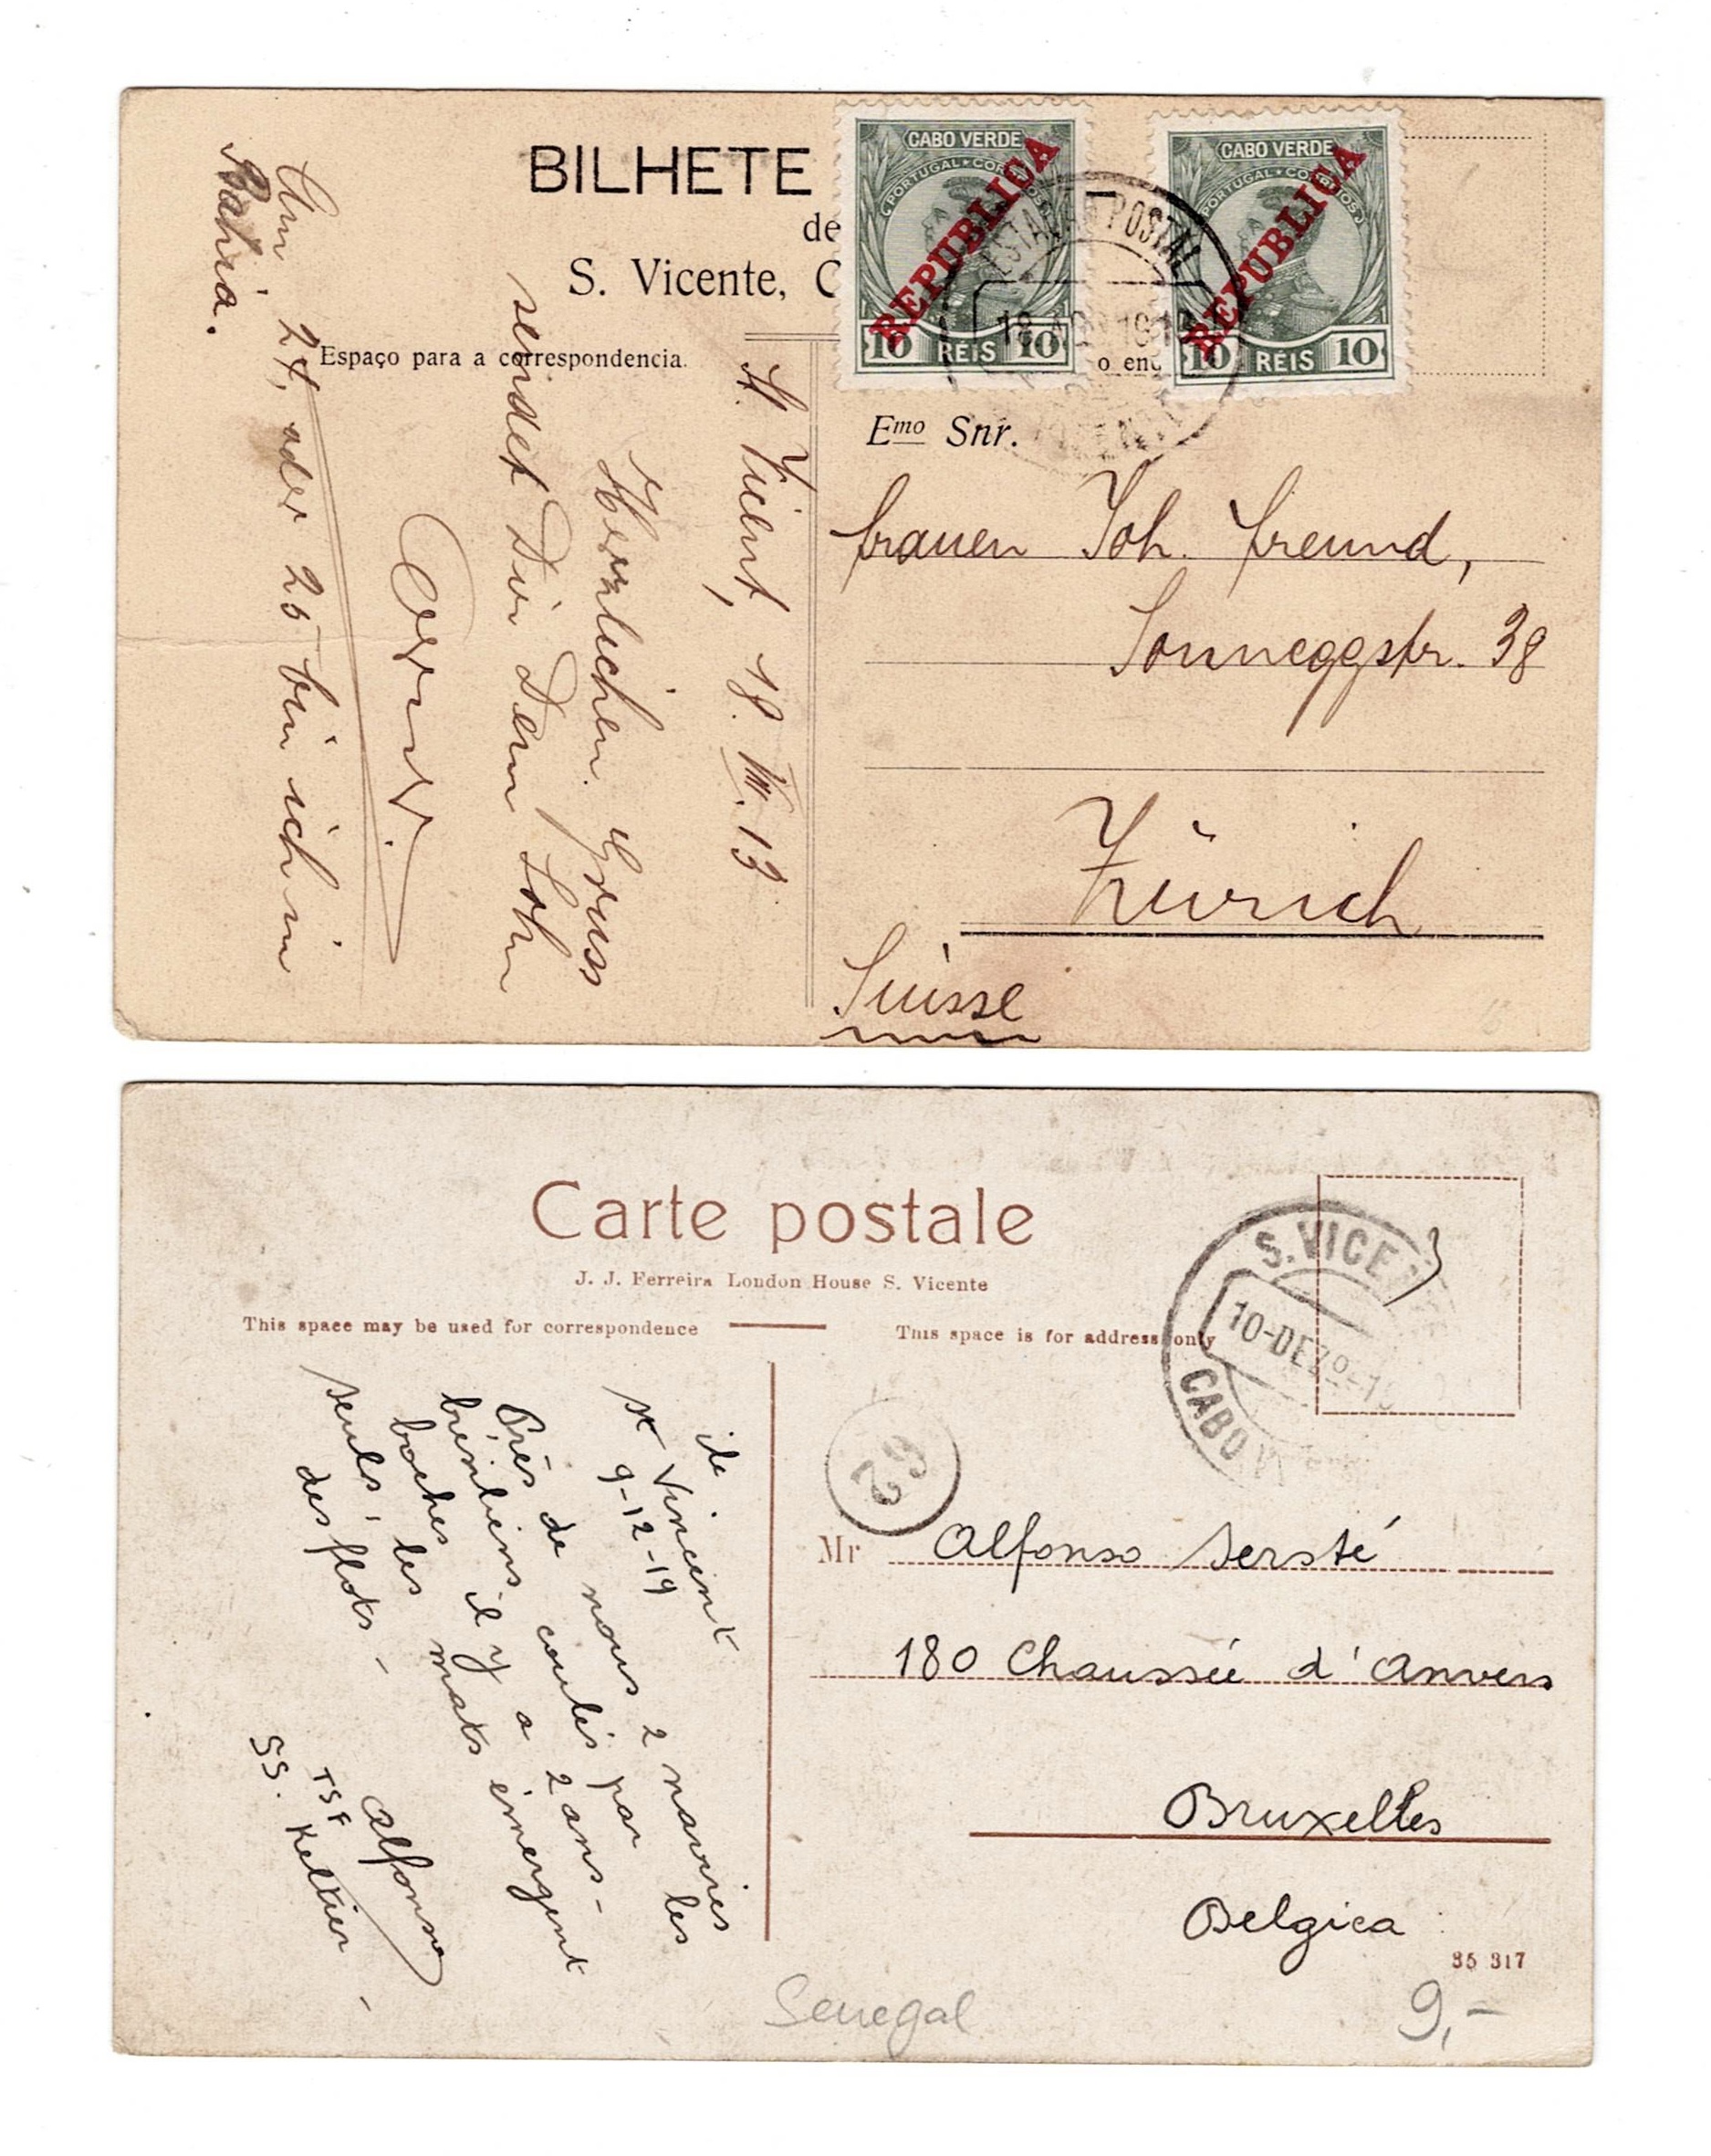 BILHETE
de
S. Vicente, C
CABO VERDE
PORTUGAL CORREIOS
REPUBLICA
10 REIS 10
CABO VERDE
PORTUGAL CORREIOS
REPUBLICA
10 REIS 10
POSTAL
Espaço para a correspondencia.
o end
Emo Snr.
Frauen Joh. Freund,
Sonneggstr. 38
Zürich
Suisse
St. Vicent, 18. VIII. 13
Herzlichen Gruss
sendet Dir Dein Sohn
Am 24, oder 25 bin ich in
Bahia.
Carte postale
J. J. Ferreira London House S. Vicente
This space may be used for correspondence
This space is for address only
S. VICE
10-DEZ
CABO V
62
Mr Alfonso Sersté
180 Chaussée d'Anvers
Bruxelles
Belgica
35 317
ile
St Vincent
9-12-19
Près de nous 2 navires
brésiliens coulés par les
boches il y a 2 ans -
seuls, les mats émergent
des flots -
Alfonso
TSF
SS.
Senegal
9,-